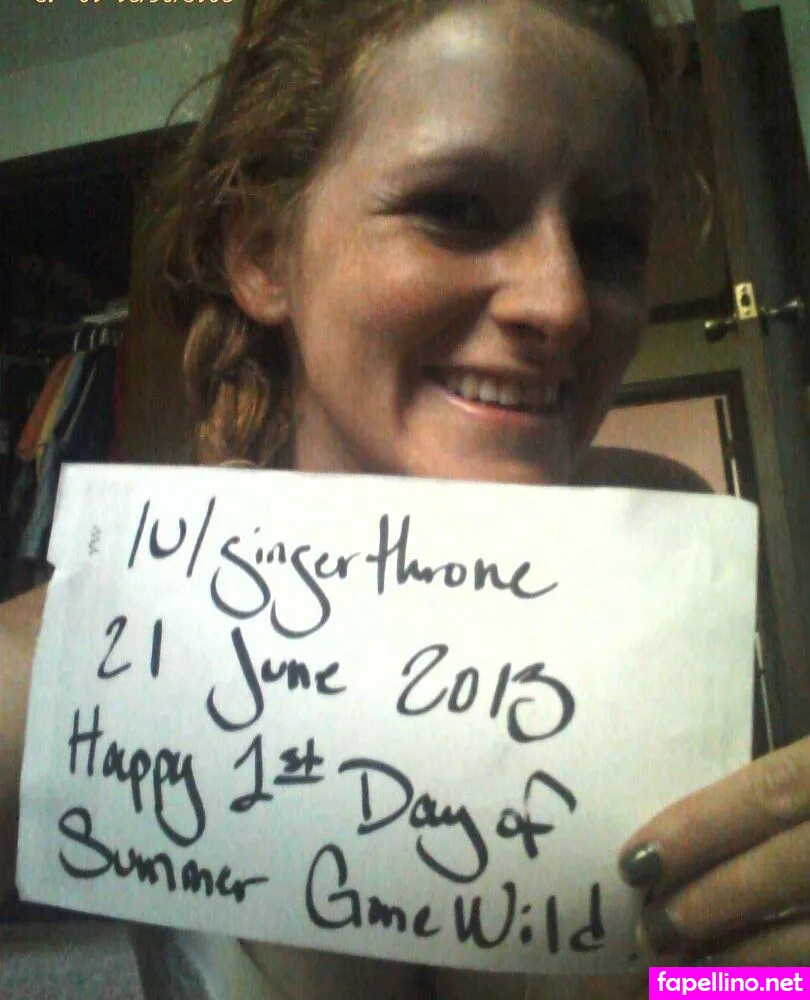 /u/gingerthrone
21 June 2013
Happy 1st Day of
Summer GoneWild!
fapellino.net